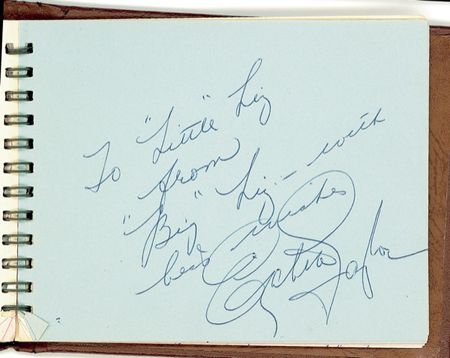 To "Little" Liz
from
"Big" Liz - with
best wishes
Elizabeth Taylor